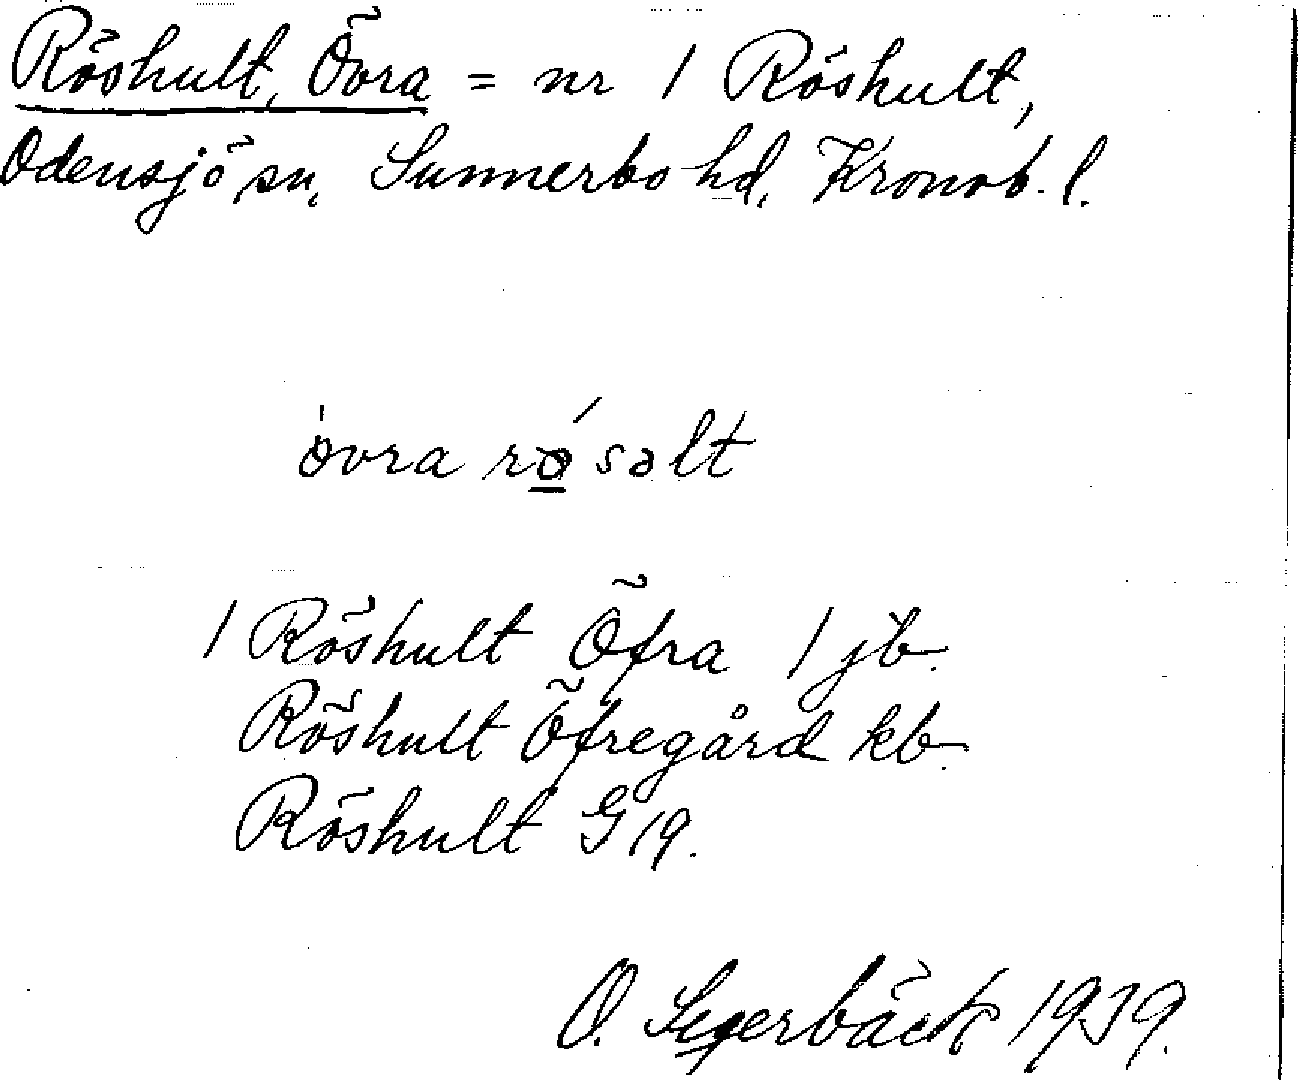 Röshult, Övra = nr 1 Röshult,
Odensjö sn, Sunnerbo hd, Kronob. l.
övra rösəlt
1 Röshult Öfra 1 jb.
Röshult Öfregård kb.
Röshult G 19.
O. Segerbäck 1939.